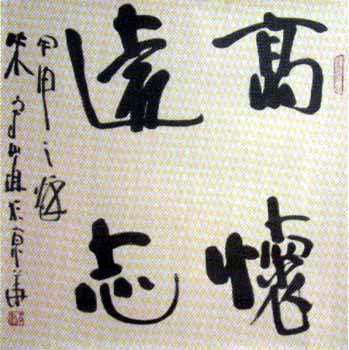 高懷
遠志
甲申之秋